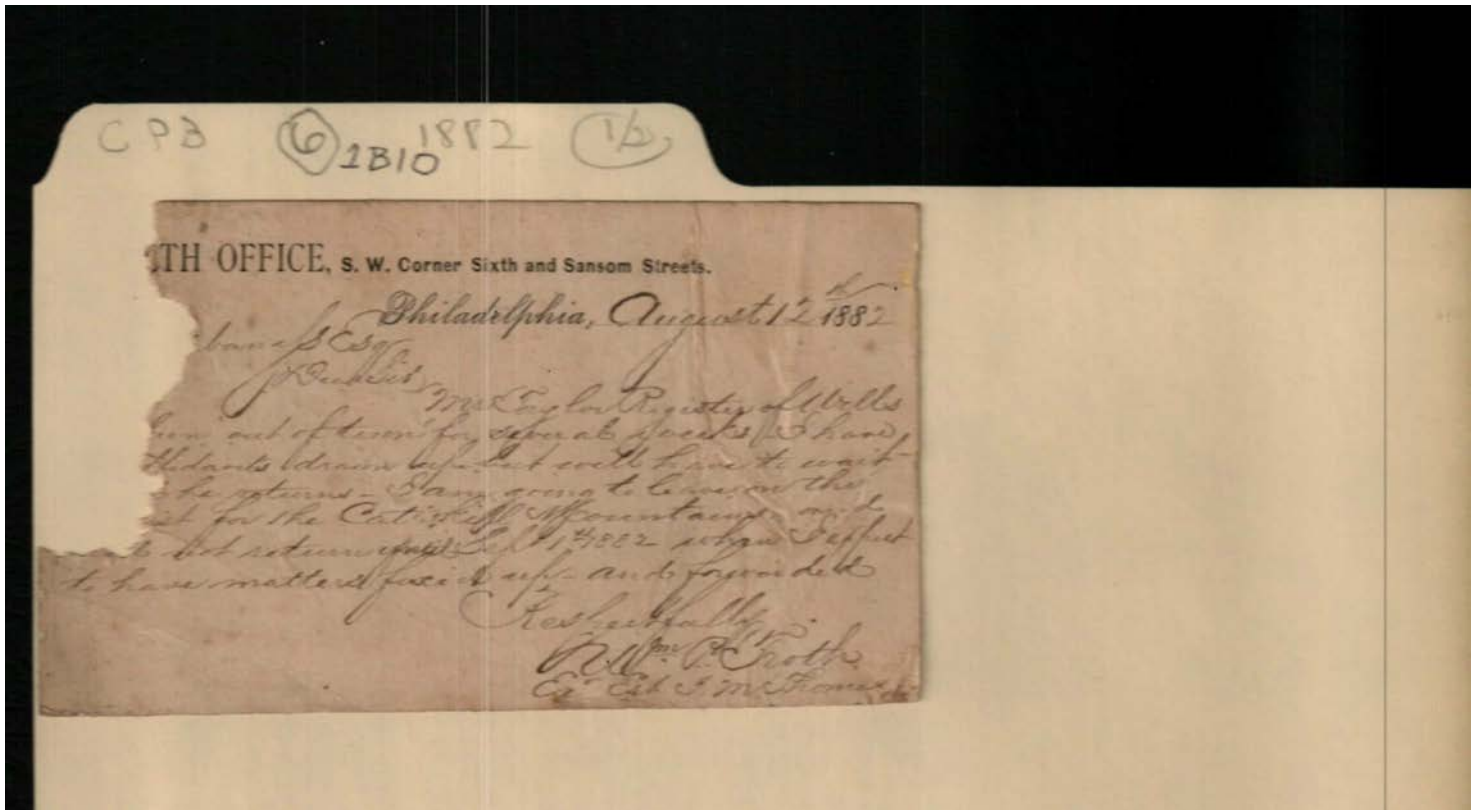 CPB 6 1B10 1882 1/2
TH OFFICE, S. W. Corner Sixth and Sansom Streets.
Philadelphia, August 12th 1882
Esq
Dear Sir
Mr Taylor Register of Wills
been out of town for several weeks I have,
fidavits drawn up but will have to wait
he returns - I am going to leave on the
for the Catskill Mountains and
not return until Sept 1st 1882 when I expect
to have matters fixed up - and forwarded
Respectfully
Wm P. Troth
Exr Est J. M. Thomas